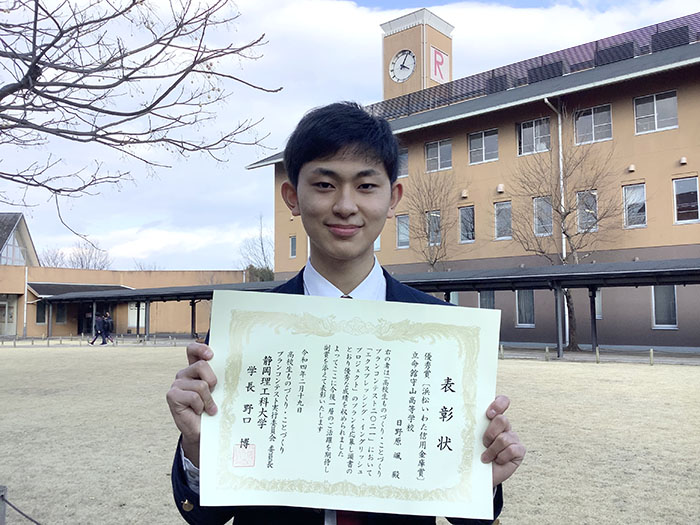 R
表彰状
優秀賞 〔浜松いわた信用金庫賞〕
立命館守山高等学校
日野原 颯 殿
右の者は「高校生ものづくり・ことづくり
プランコンテスト二〇二一」において
「エクスプレッシング・イングリッシュ
プロジェクト」のプランを応募し頭書の
とおり優秀な成績を収められました
よってここに今後一層のご活躍を期待し
副賞を添えて表彰いたします
令和四年二月十九日
高校生ものづくり・ことづくり
プランコンテスト実行委員会 委員長
静岡理工科大学
学長 野口 博